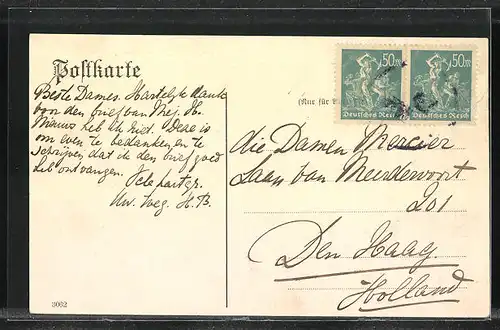 Postkarte
(Nur für
50m 50m
Deutsches Reich Deutsches Reich
Beste Dames. Hartelijk dank
voor den brief van Mej. H.
Nieuws heb ik niet. Deze is
om even te bedanken en te
schrijven dat ik den brief goed
heb ontvangen.
Uw. toeg. H.B.
die Damen Mercier
Laan van Meerdervoort
201
Den Haag
Holland
3062